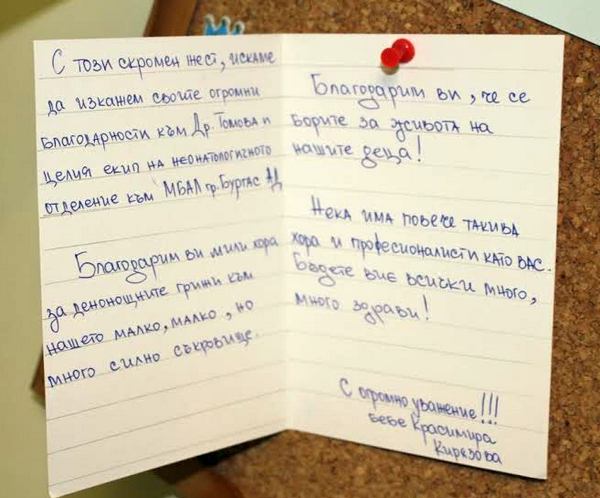 С този скромен жест, искаме
да изкажем своите огромни
благодарности към Др. Томова и
целия екип на неонатологичното
отделение към МБАЛ гр. Бургас АД
Благодарим ви мили хора
за денонощните грижи към
нашето малко, малко, но
много силно съкровище.
Благодарим ви, че се
борите за живота на
нашите деца!
Нека има повече такива
хора и професионалисти като вас.
Бъдете вие всички много,
много здрави!
С огромно уважение!!!
бебе Красимира
Кирязова